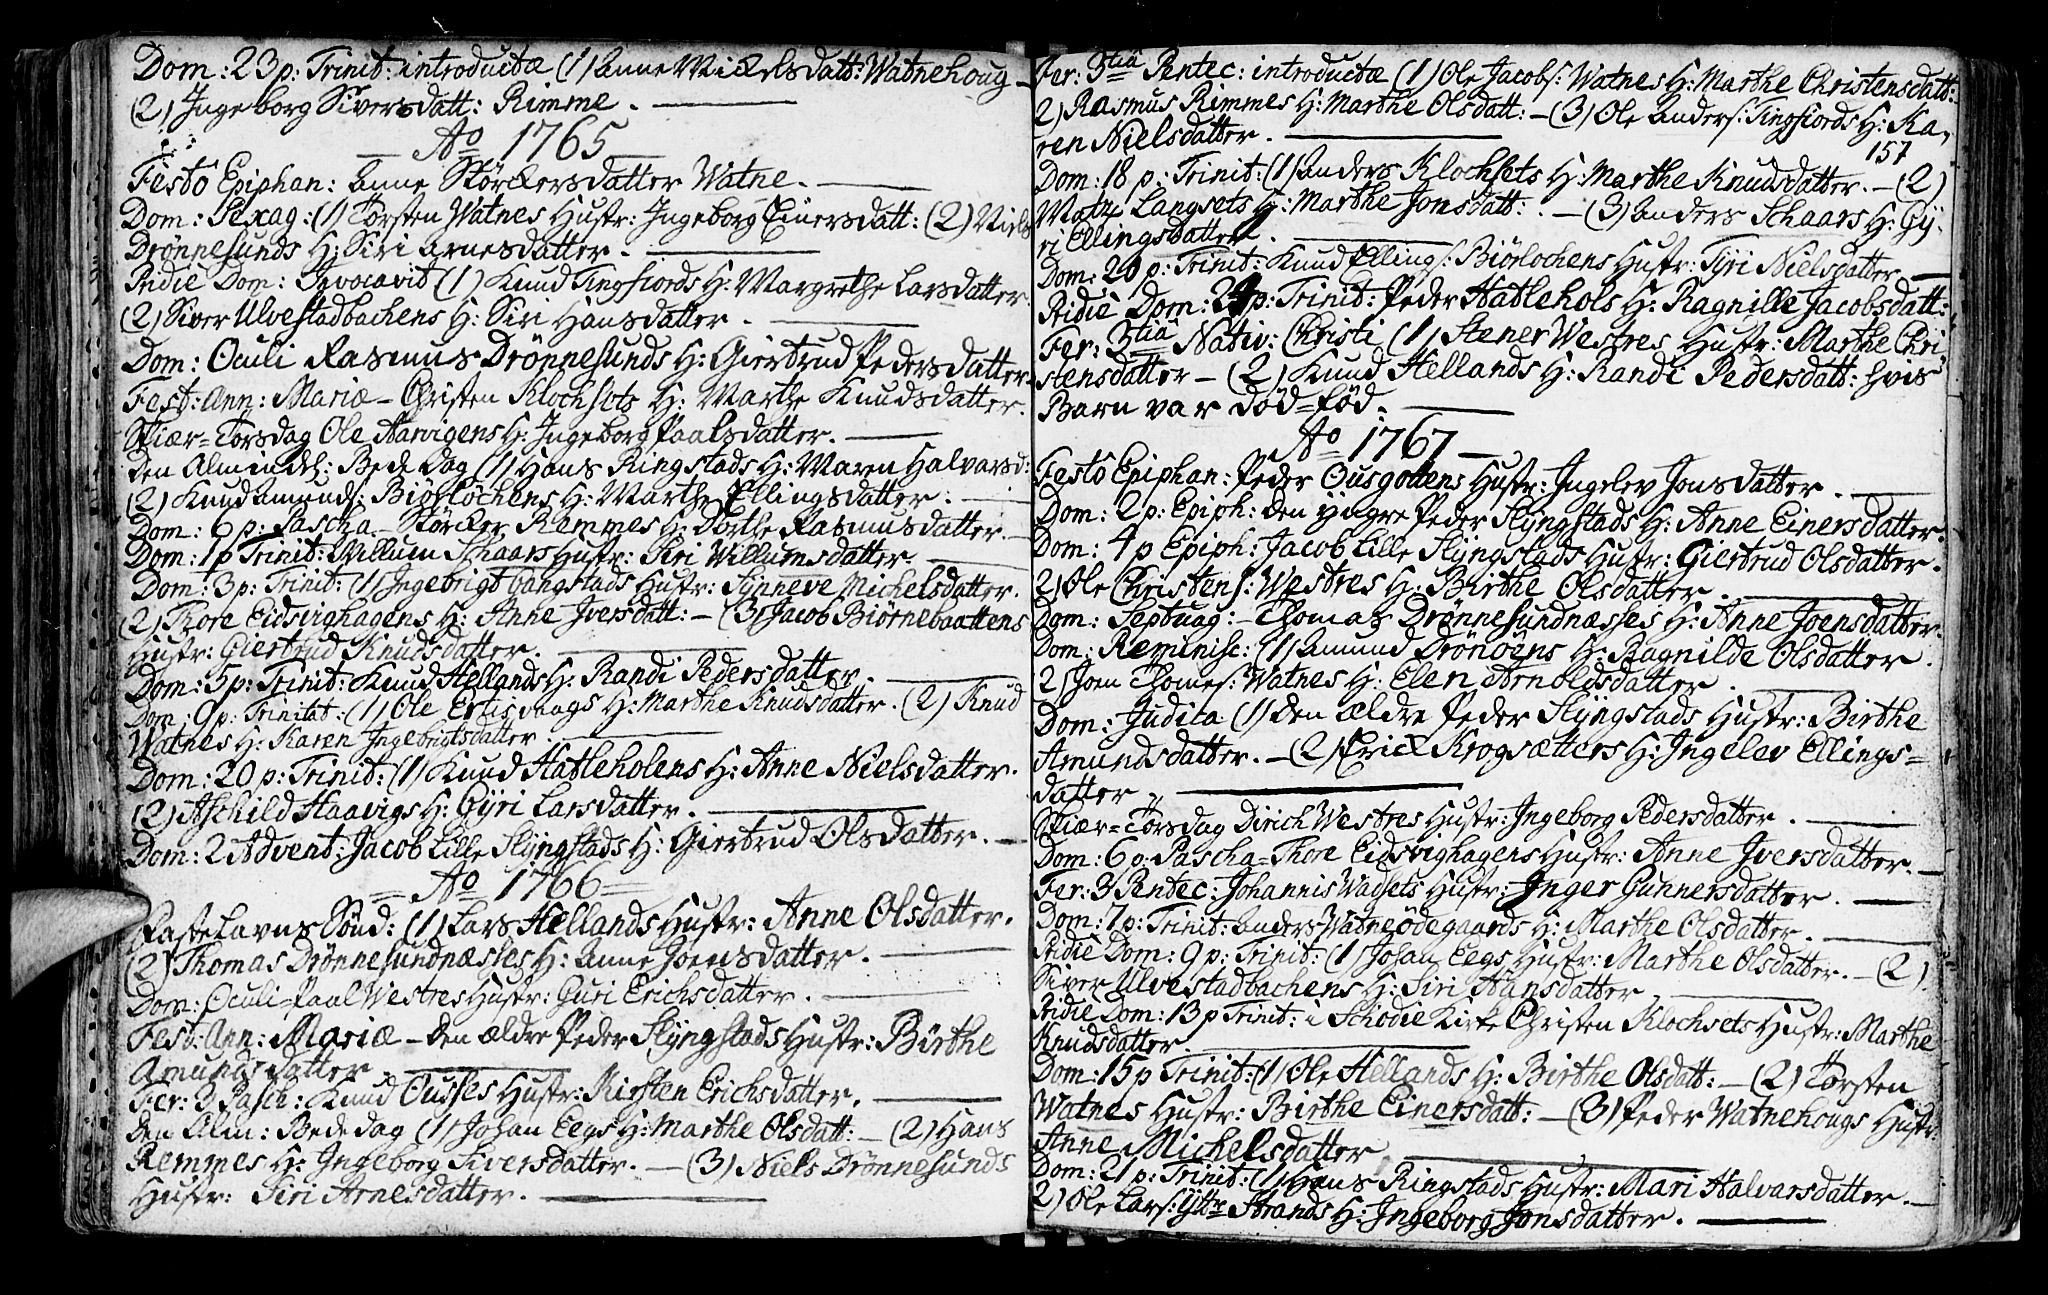 Dom: 23 p: Trinit: introductæ (1) Anne Mickelsdatt: Watnehoug
(2) Ingeborg Siversdatt: Rimme.
Ao 1765
Festo Epiphan: Anne Störckersdatter Watne.
Dom: Sexag: (1) Torsten Watnes Hustr: Ingeborg Einersdatt: (2) Niels
Drönnesunds H: Siri Arnesdatter.
Pridie Dom: Invocavit (1) Knud Tingfiords H: Margrethe Larsdatter
(2) Siver Ulvestadbachens H: Siri Hansdatter.
Dom: Oculi Rasmus Drönnesunds H: Giertrud Pedersdatter.
Fest: Ann: Mariæ - Christen Klochsets H: Marthe Knudsdatter.
Skiær=Torsdag Ole Aarvigens H: Ingeborg Paalsdatter.
den Almindel: Bede Dag (1) Hans Ringstads H: Maren Halvarsd:
(2) Knud Amunds: Biörlochens H: Marthe Ellingsdatter.
Dom: 6 p: Pascha - Störcker Remmes H: Dorthe Rasmusdatter.
Dom: 1 p Trinit: Willum Schaars Hustr: Siri Willumsdatter.
Dom: 3 p: Trinit: (1) Ingebrigt Gangstads Hustr: Synneve Michelsdatter.
(2) Thore Eidsvighagens H: Anne Iversdatt: - (3) Jacob Biörnebaattens
Hustr: Giertrud Knudsdatter.
Dom: 5 p: Trinit: Knud Hellands H: Randi Pedersdatter.
Dom: 9 p: Trinitat: (1) Ole Ertisvaags H: Marthe Knudsdatter. (2) Knud
Watnes H: Karen Ingebrigtsdatter.
Dom: 20 p: Trinit: (1) Knud Hatleholens H: Anne Nielsdatter.
(2) Aschild Haavigs H: Gÿri Larsdatter.
Dom: 2 Advent: Jacob Lille Slÿngstads H: Giertrud Olsdatter.
Ao 1766
Fastelavns Sönd: (1) Lars Hellands Hustr: Anne Olsdatter.
(2) Thomas Drönnesundnæsses H: Anne Joensdatter.
Dom: Oculi - Paal Westres Hustr: Guri Erichsdatter.
Fest: Ann: Mariæ - den ældre Peder Slÿngstads Hustr: Birthe
Amundsdatter.
Fer: 3 Pasch: Knud Ousses Hustr: Kirsten Erichsdatter.
den Alm: Bededag (1) Johan Eegs H: Marthe Olsdatt: - (2) Hans
Remmes H: Ingeborg Siversdatter. - (3) Niels Drönnesunds
Hustr: Siri Arnesdatter.
Fer: 3tia Pentec: introductæ (1) Ole Jacobs: Watnes H: Marthe Christensdatt:
2) Rasmus Rimmes H: Marthe Olsdatt: - (3) Ole Anders: Tingfiords H: Ka-
ren Nielsdatter.
157
Dom: 18 p: Trinit: (1) Anders Klochsets H: Marthe Knudsdatter. - (2)
Langsets H: Marthe Jonsdatt: - (3) Anders Schaars H: Gÿ-
ri Ellingsdatter.
Dom: 20 p: Trinit: Knud Ellings: Biörlochens Hustr: Gyri Nielsdatter.
Pridie Dom: 24 p: Trinit: Peder Hatlehols H: Ragnille Jacobsdatt:
Fer: 3tia Nativ: Christi (1) Stener Westres Hustr: Marthe Chri
stensdatter - (2) Knud Hellands H: Randi Pedersdatt: hvis
Barn var död=föd.
Ao 1767
Festo Epiphan: Peder Ousgottens Hustr: Ingelev Jonsdatter.
Dom: 2 p: Epiph: den yngre Peder Slÿngstads H: Anne Einersdatter.
Dom: 4 p Epiph: Jacob Lille Slÿngstads Hustr: Giertrud Olsdatter.
2) Ole Christens: Westres H: Birthe Olsdatter.
Dom: Septuag: - Thomas Drönnesundnæsses H: Anne Joensdatter.
Dom: Reminisc: (1) Amund Drönöens H: Ragnilde Olsdatter.
2) Joen Thomes: Watnes H: Elen Arnoldsdatter.
Dom: Judica (1) den ældre Peder Slÿngstads Hustr: Birthe
Amundsdatter. - (2) Erick Krogsætters H: Ingelev Ellings=
datter.
Skiær=Torsdag Dirich Westres Hustr: Ingeborg Pedersdatter.
Dom: 6 p: Pascha= Thore Eidsvighagens Hustr: Anne Iversdatter.
Fer: 3 Pentec: Johannis Wadsets Hustr: Inger Gunnersdatter.
Dom: 7 p: Trinit: Anders Watneödegaards H: Marthe Olsdatter.
Pridie Dom: 9 p: Trinit: (1) Johan Eegs Hustr: Marthe Olsdatter. - (2)
Siver Ulvestadbachens H: Siri Hansdatter.
Pridie Dom: 13 p Trinit: i Schodie Kirke Christen Klochsets Hustr: Marthe
Knudsdatter.
Dom: 15 p Trinit: (1) Ole Hellands H: Birthe Olsdatt: - (2) Torsten
Watnes Hustr: Birthe Einersdatt: - (3) Peder Watnehougs Hustr:
Anne Michelsdatter.
Dom: 21 p: Trinit: (1) Hans Ringstads Hustr: Mari Halvarsdatter. -
2) Ole Lars: Ytre Strands H: Ingeborg Jonsdatter.